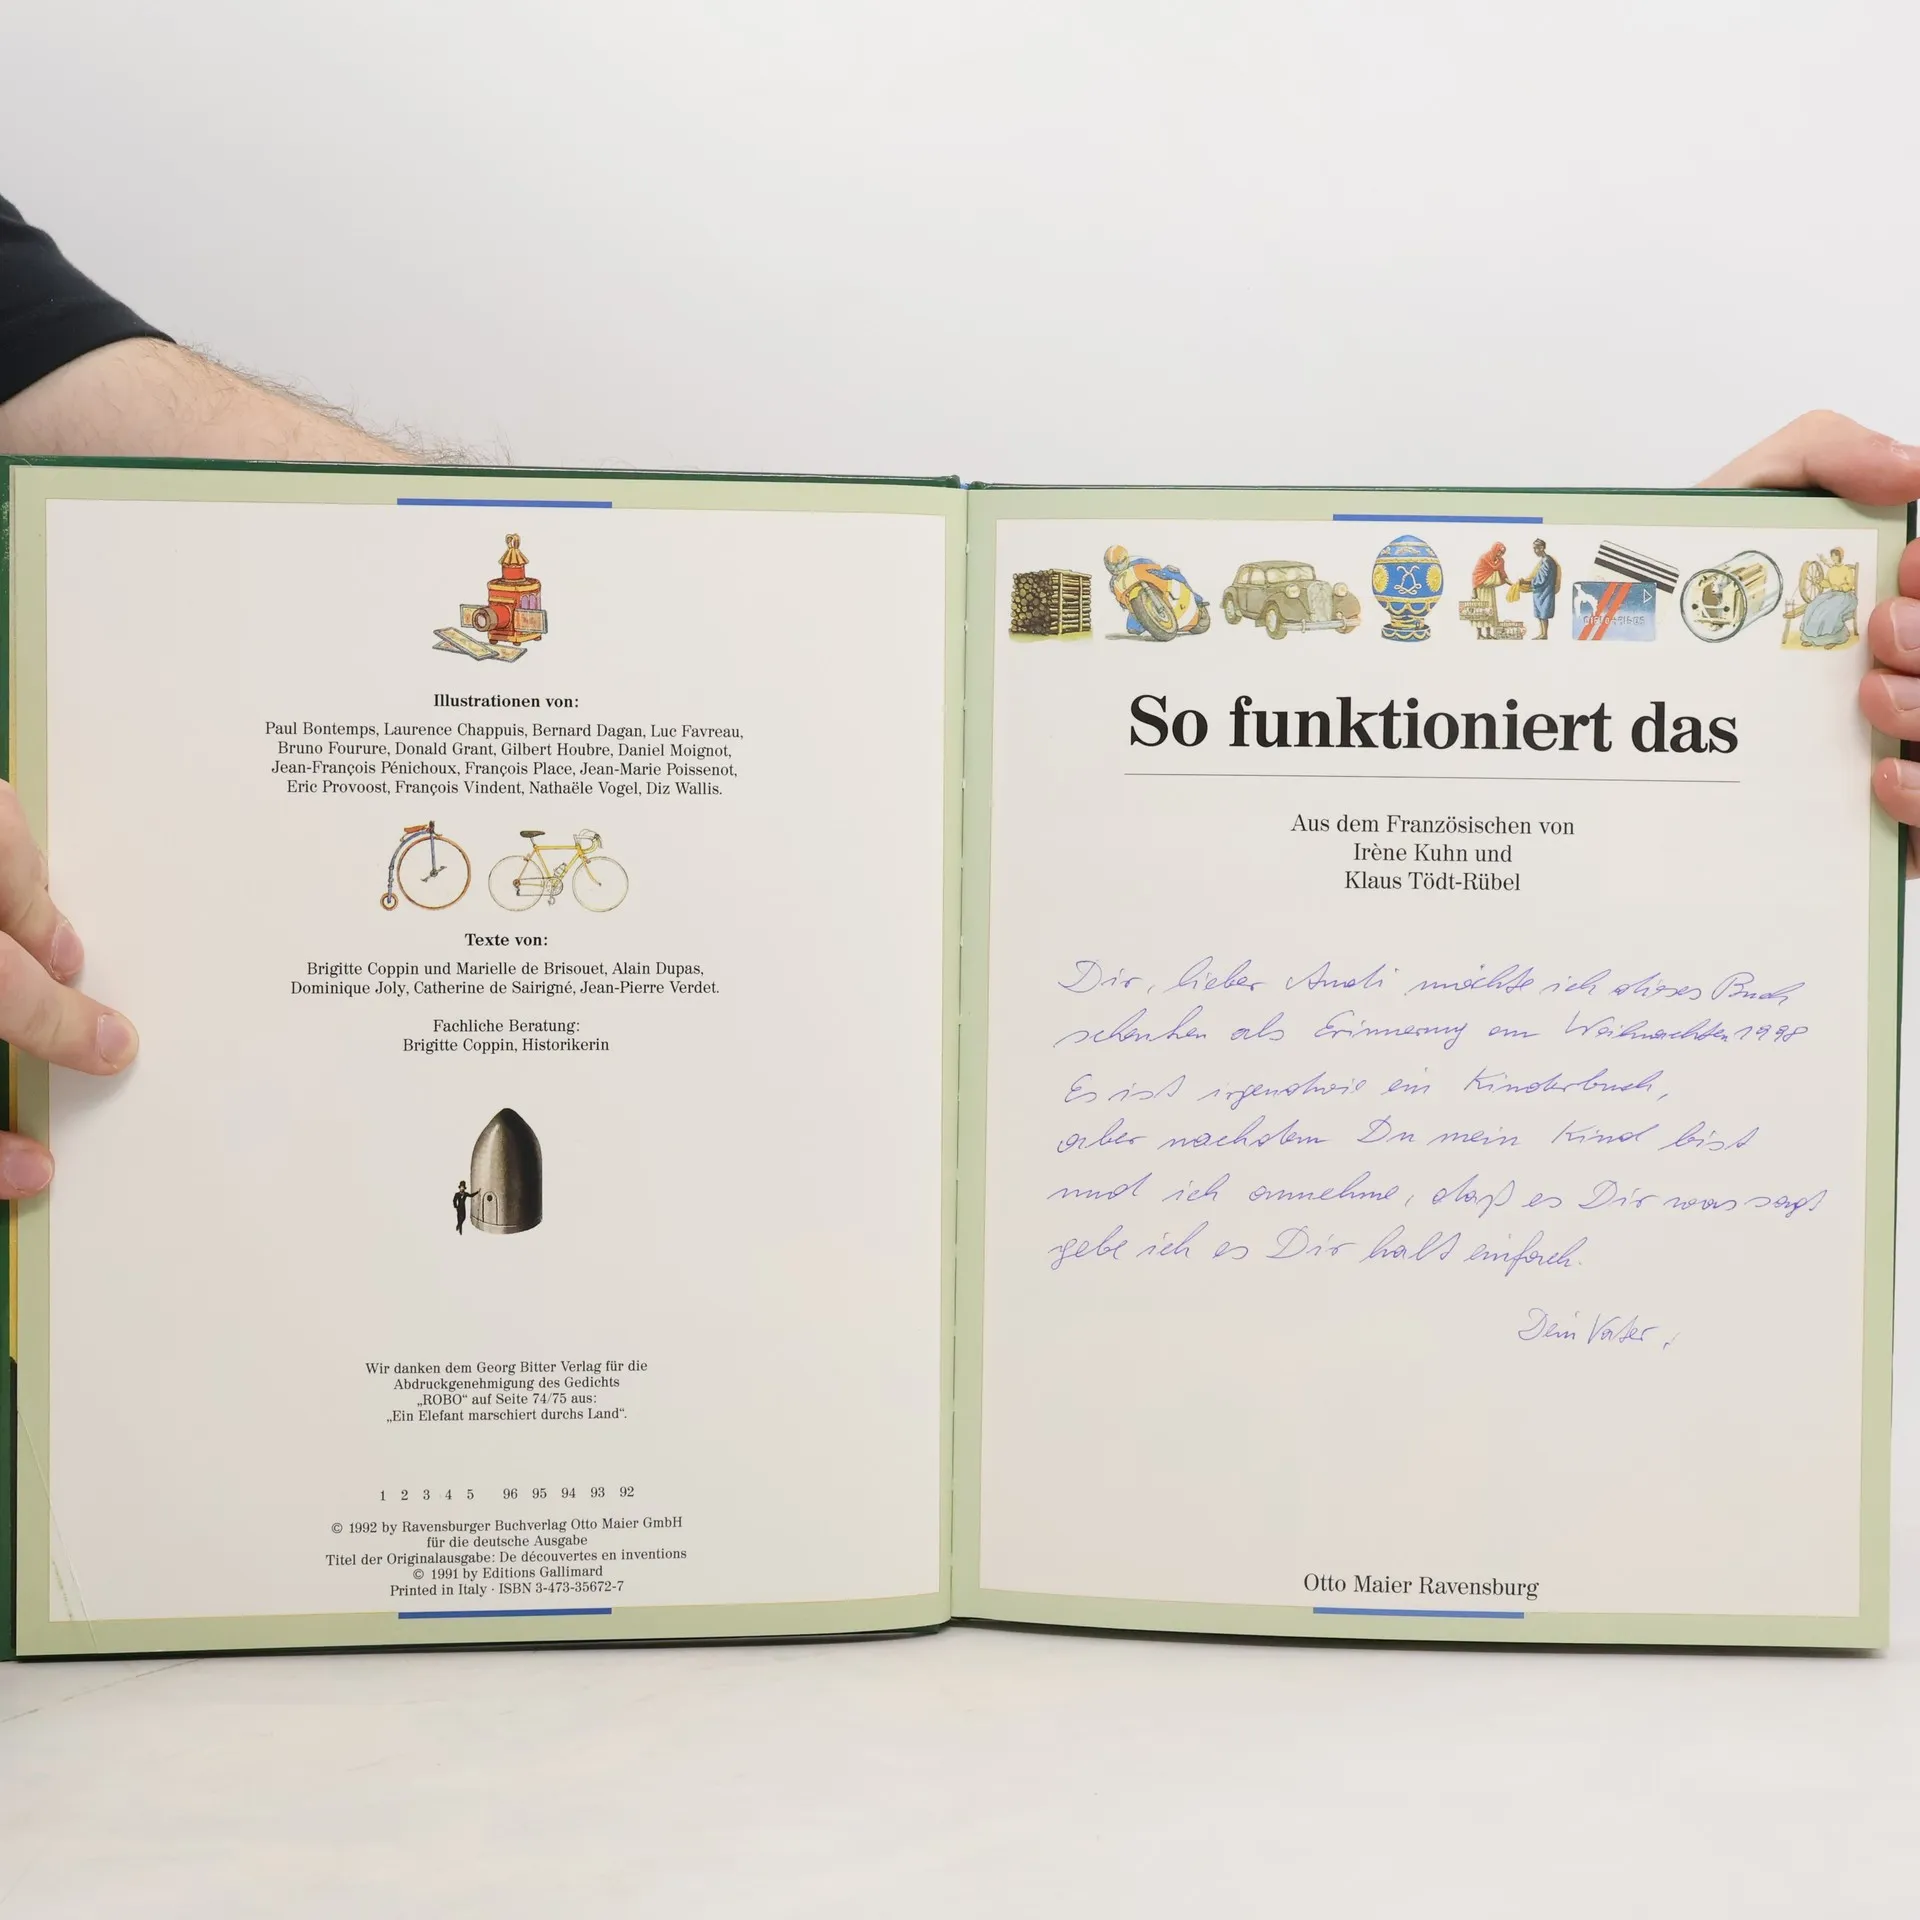 Illustrationen von:
Paul Bontemps, Laurence Chappuis, Bernard Dagan, Luc Favreau,
Bruno Fourure, Donald Grant, Gilbert Houbre, Daniel Moignot,
Jean-François Pénichoux, François Place, Jean-Marie Poissenot,
Eric Provoost, François Vindent, Nathaële Vogel, Diz Wallis.
Texte von:
Brigitte Coppin und Marielle de Brisouet, Alain Dupas,
Dominique Joly, Catherine de Sairigné, Jean-Pierre Verdet.
Fachliche Beratung:
Brigitte Coppin, Historikerin
Wir danken dem Georg Bitter Verlag für die
Abdruckgenehmigung des Gedichts
„ROBO“ auf Seite 74/75 aus:
„Ein Elefant marschiert durchs Land“.
1 2 3 4 5 96 95 94 93 92
© 1992 by Ravensburger Buchverlag Otto Maier GmbH
für die deutsche Ausgabe
Titel der Originalausgabe: De découvertes en inventions
© 1991 by Editions Gallimard
Printed in Italy · ISBN 3-473-35672-7
So funktioniert das
Aus dem Französischen von
Irène Kuhn und
Klaus Tödt-Rübel
Dir, lieber Andi möchte ich dieses Buch
schenken als Erinnerung an Weihnachten 1998
Es ist irgendwie ein Kinderbuch,
aber nachdem Du mein Kind bist
und ich annehme, daß es Dir was sagt
gebe ich es Dir halt einfach.
Dein Vater!
Otto Maier Ravensburg